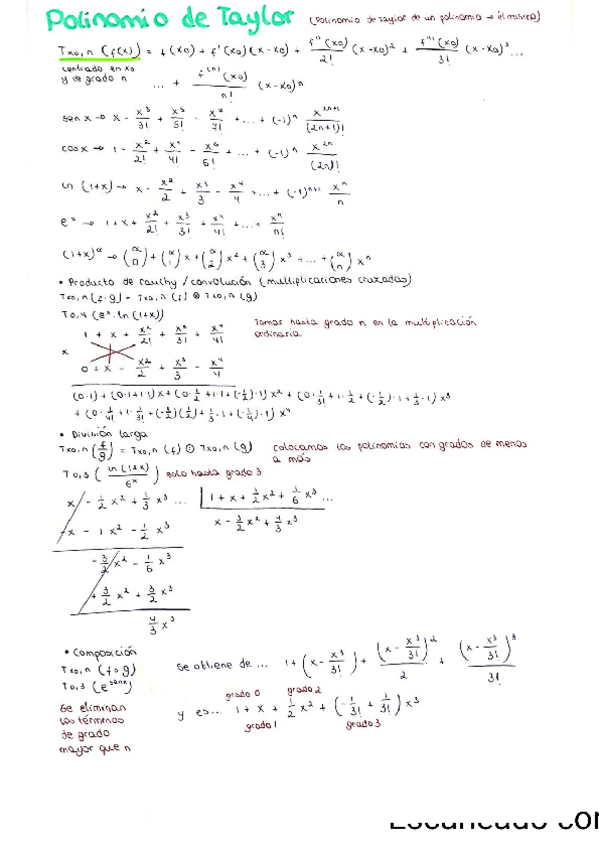 Polinomio de Taylor (Polinomio de Taylor de un polinomio → él mismo)
Tx₀,n (f(x)) = f(x₀) + f'(x₀)(x-x₀) + f''(x₀)/2! (x-x₀)² + f'''(x₀)/3! (x-x₀)³ ...
centrado en x₀
y de grado n ... + f⁽ⁿ⁾(x₀)/n! (x-x₀)ⁿ
sen x → x - x³/3! + x⁵/5! - x⁷/7! + ... + (-1)ⁿ x²ⁿ⁺¹/(2n+1)!
cos x → 1 - x²/2! + x⁴/4! - x⁶/6! + ... + (-1)ⁿ x²ⁿ/(2n)!
ln (1+x) → x - x²/2 + x³/3 - x⁴/4 + ... + (-1)ⁿ⁺¹ xⁿ/n
eˣ → 1 + x + x²/2! + x³/3! + x⁴/4! + ... + xⁿ/n!
(1+x)^α → (α 0) + (α 1) x + (α 2) x² + (α 3) x³ + ... + (α n) xⁿ
• Producto de cauchy / convolución (multiplicaciones cruzadas)
Tx₀,n (f·g) = Tx₀,n (f) ⊗ Tx₀,n (g)
T0,4 (eˣ · ln (1+x))
1 + x + x²/2! + x³/3! + x⁴/4! Tomar hasta grado n en la multiplicación
x ordinaria
0 + x - x²/2 + x³/3 - x⁴/4
(0·1) + (0·1+1·1) x + (0·1/2 + 1·1 + (-1/2)·1) x² + (0·1/3! + 1·1/2 + (-1/2)·1 + 1/3·1) x³
+ (0·1/4! + 1·1/3! + (-1/2)(1/2) + 1/3·1 + (-1/4)·1) x⁴
• División larga
Tx₀,n (f/g) = Tx₀,n (f) ⊙ Tx₀,n (g) colocamos los polinomios con grados de menos
a más
T0,3 (ln (1+x)/eˣ) solo hasta grado 3
x - 1/2 x² + 1/3 x³ ... 1 + x + 1/2 x² + 1/6 x³ ...
-x - 1 x² - 1/2 x³ x - 3/2 x² + 4/3 x³
- 3/2 x² - 1/6 x³
+ 3/2 x² + 3/2 x³
4/3 x³
• Composición
Tx₀,n (f∘g) se obtiene de ... 1 + (x - x³/3!) + (x - x³/3!)²/2 + (x - x³/3!)³/3!
T0,3 (e^senx)
grado 0 grado 2
Se eliminan y es... 1 + x + 1/2 x² + (-1/3! + 1/3!) x³
los términos grado 1 grado 3
de grado
mayor que n